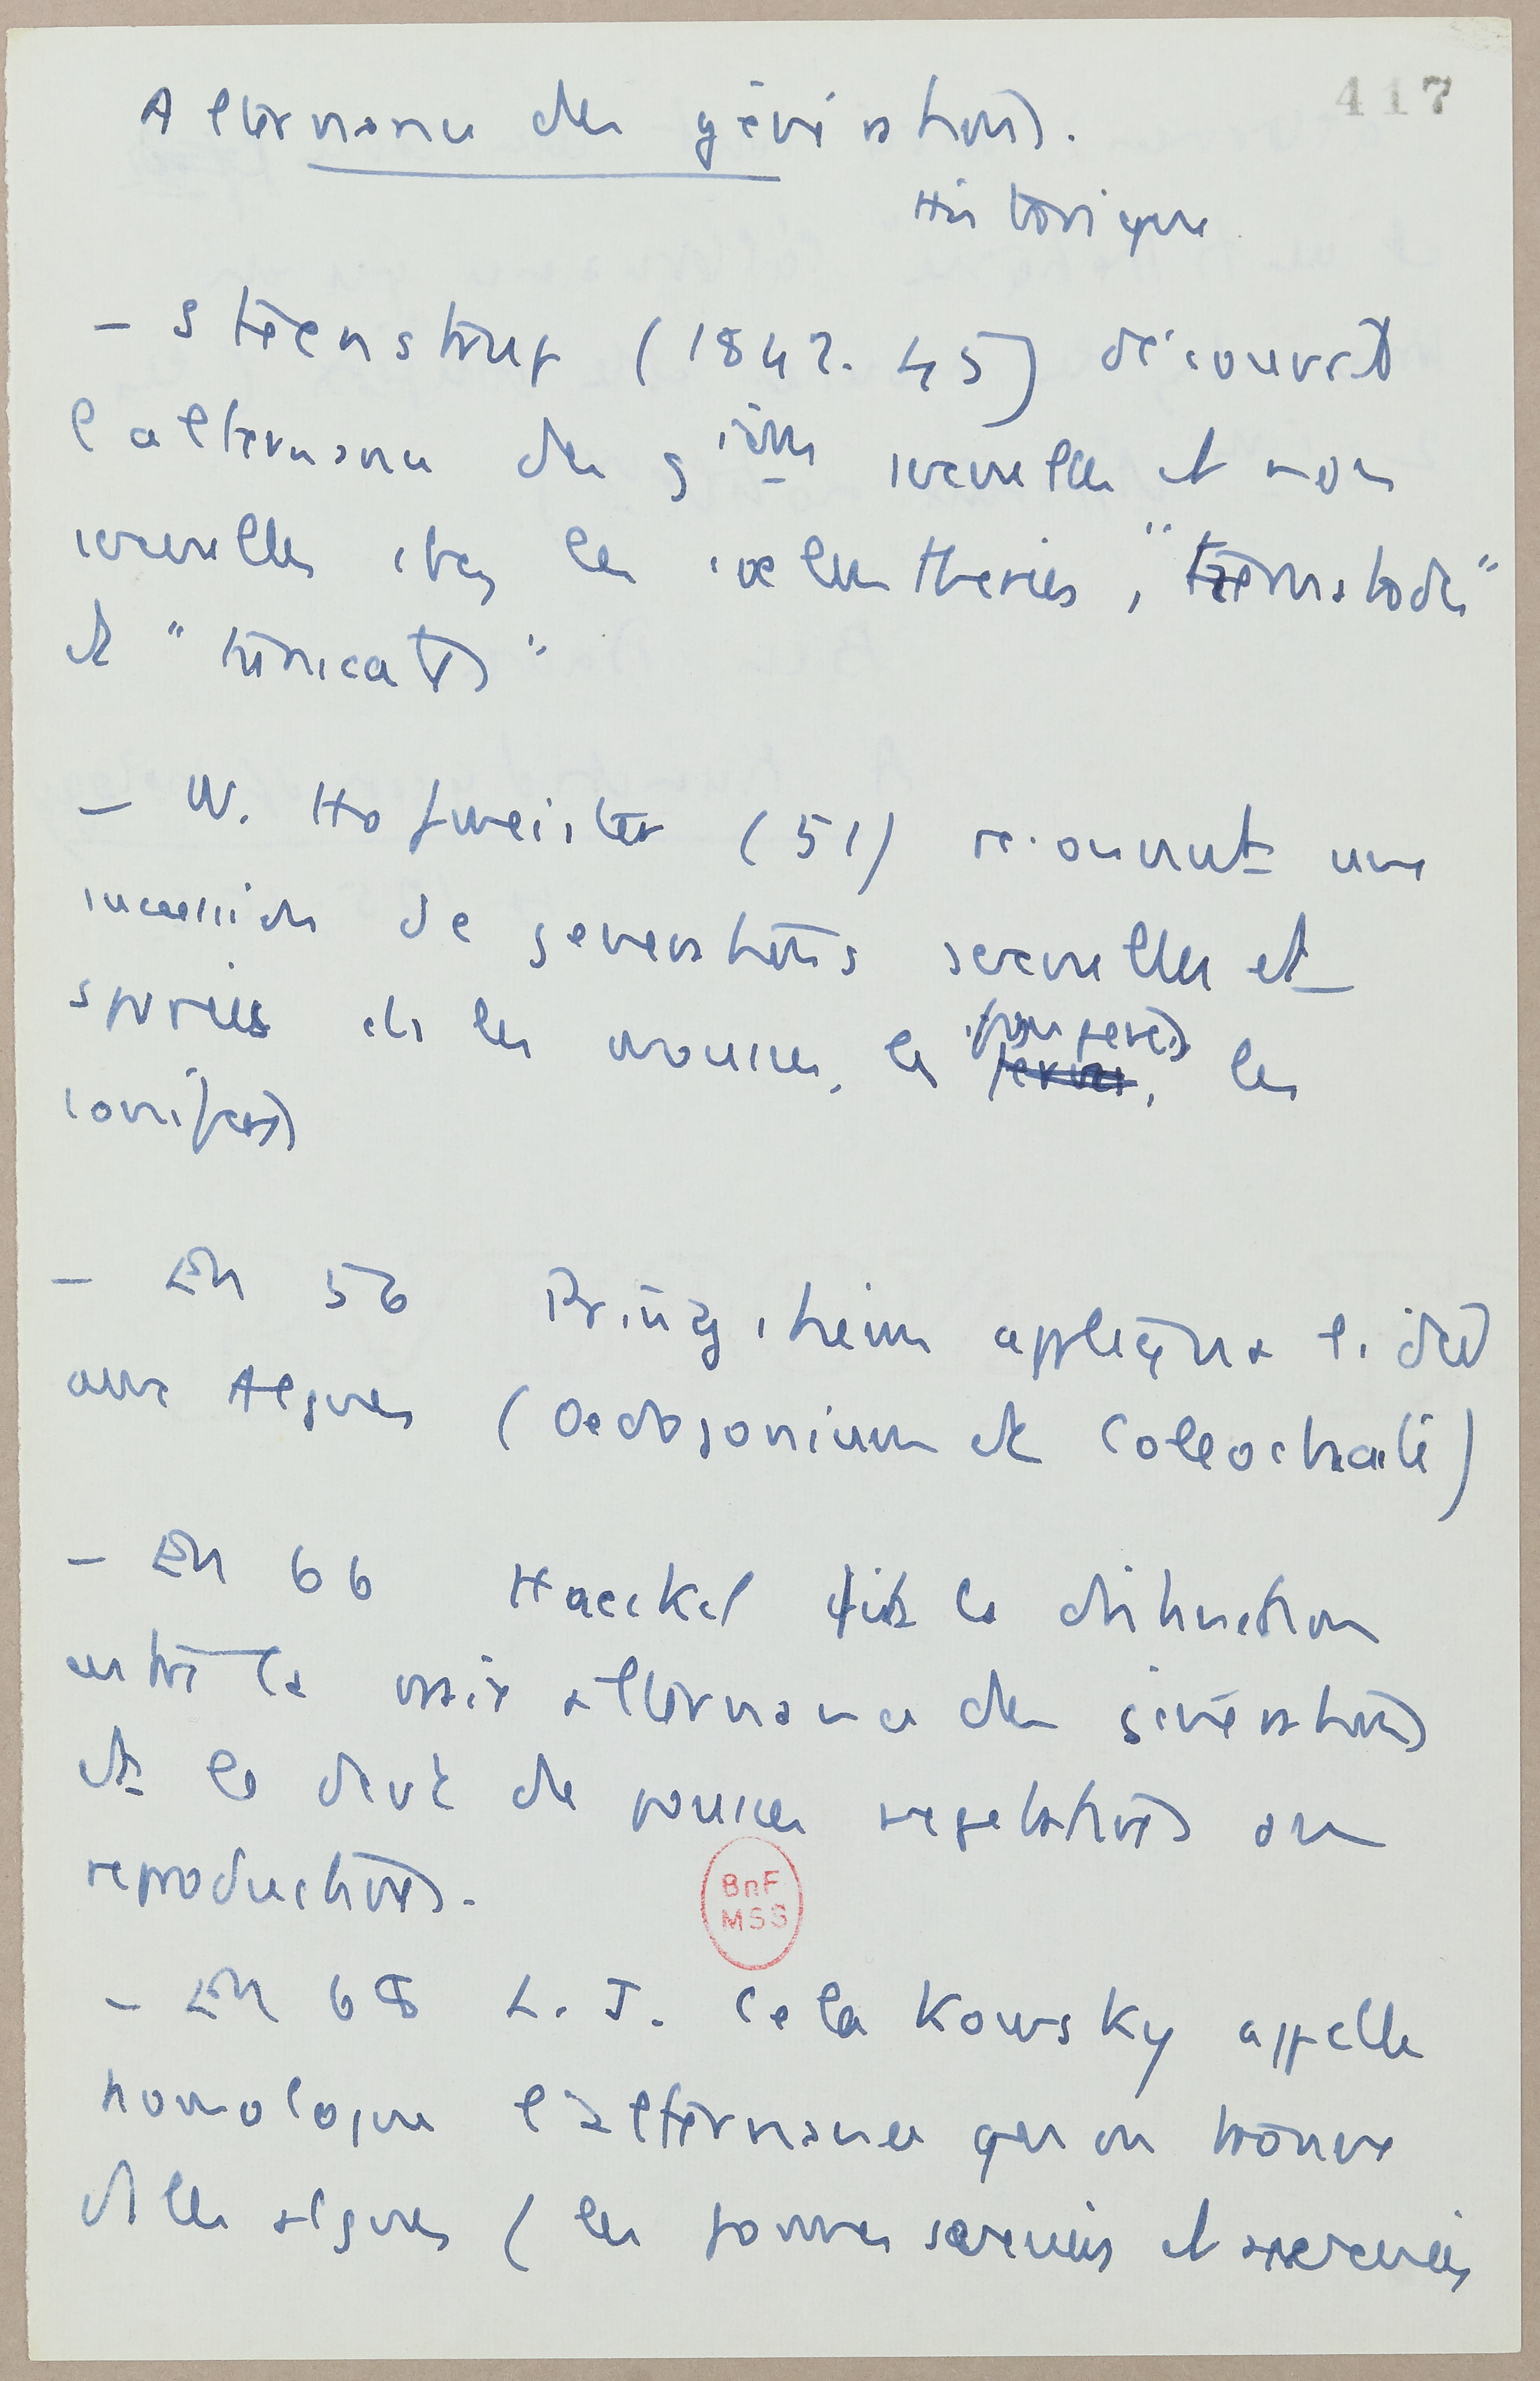 417
Alternance des générations.
Historique
- Steenstrup (1842.45) découvrit
l'alternance des gions sexuelles et non
sexuelles chez les coelenterés, "trématodes"
et "tunicates"
- W. Hofmeister (51) reconnut une
succession de generations sexuelles et
sporées ch les mousses, les fougeres, les
conifères
- En 56 Pringsheim appliqua l'idée
aux Algues (Oedogonium et Coleochaete)
- En 66 Haeckel fit la distinction
entre la vraie alternance des générations
et la de pousses vegetatives ou
reproductives.
BnF
MSS
- En 68 L. J. Celakowsky appelle
homologue l'alternance qu'on trouve
ds les algues (les formes sexuées et asexuées